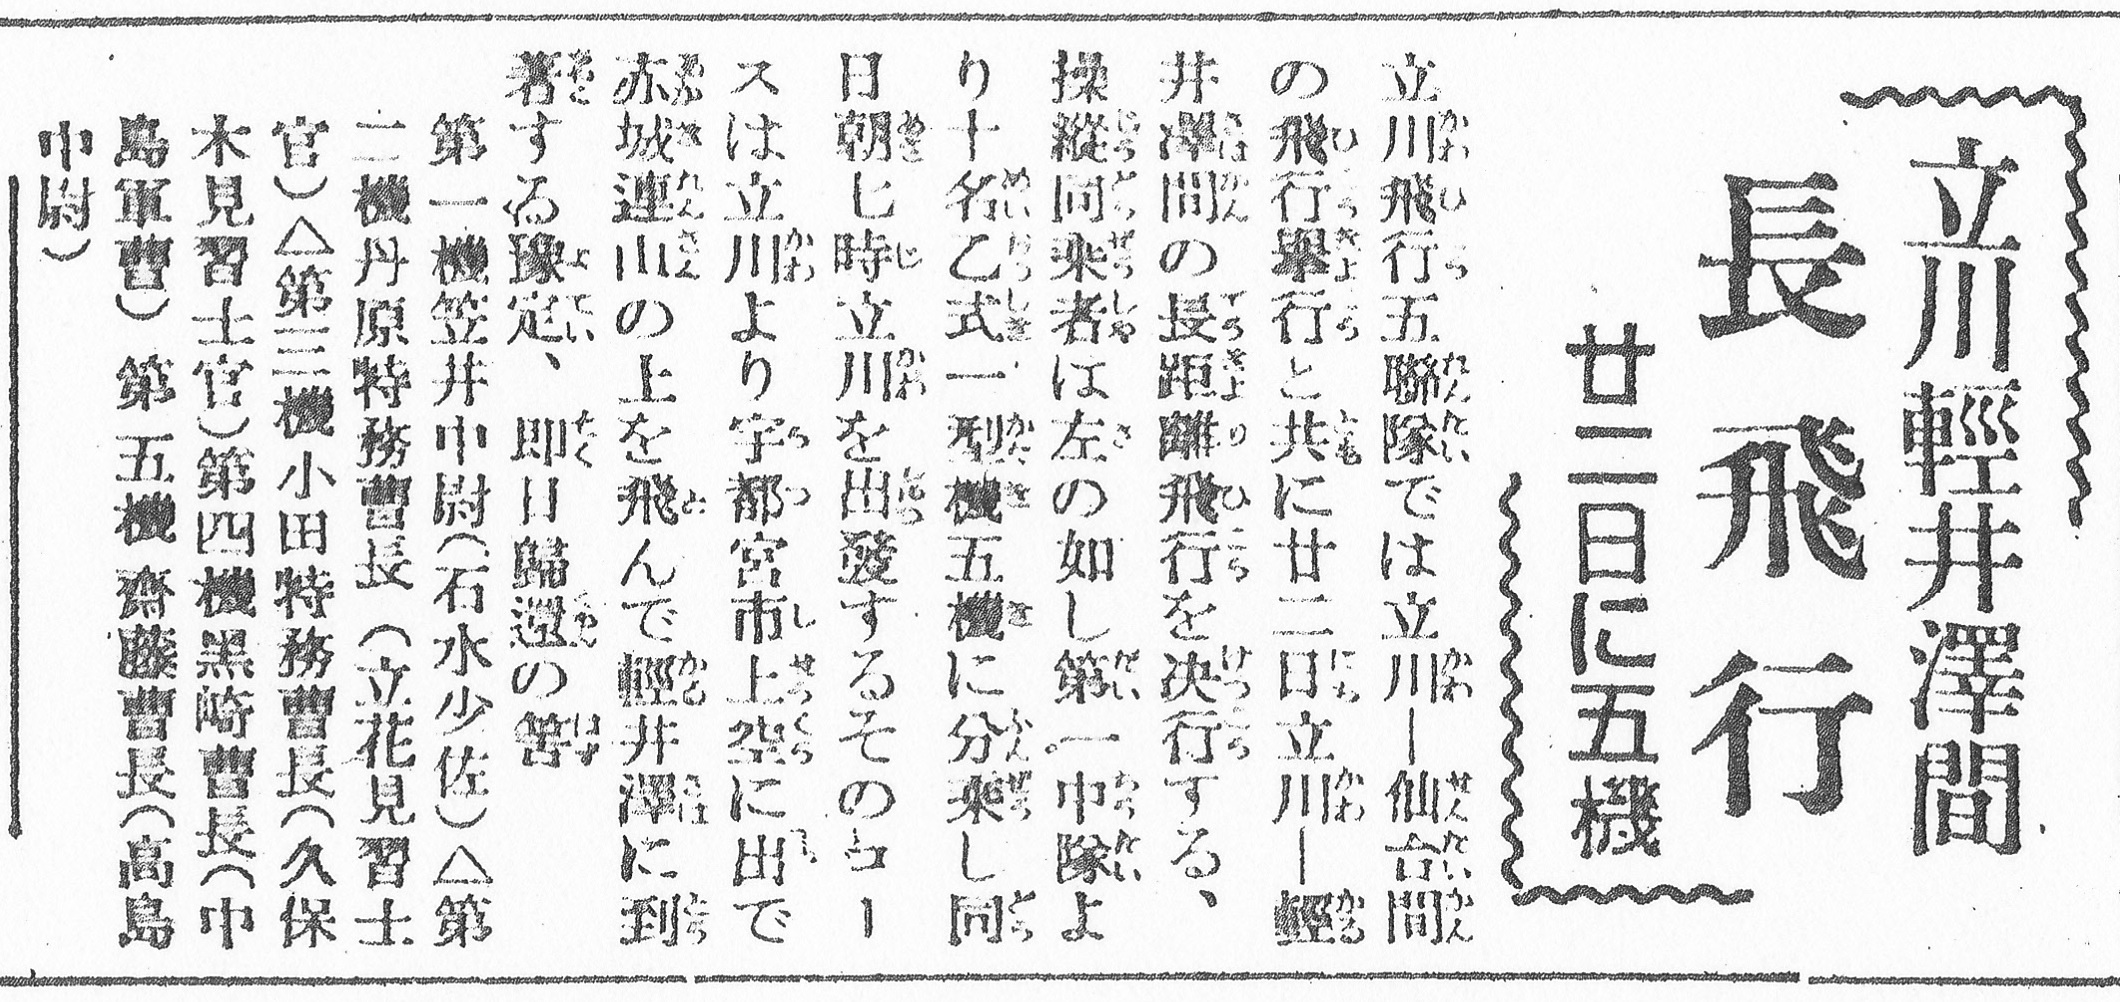 立川輕井澤間
長飛行
廿二日に五機
立川飛行五聯隊では立川ー仙台間
の飛行擧行と共に廿二日立川ー輕
井澤間の長距離飛行を決行する、
操縱同乘者は左の如し第一中隊よ
り十名乙式一型機五機に分乘し同
日朝七時立川を出發するそのコー
スは立川より宇都宮市上空に出で
赤城連山の上を飛んで輕井澤に到
著する豫定、即日歸還の筈
第一機笠井中尉(石水少佐)△第
二機丹原特務曹長(立花見習士
官)△第三機小田特務曹長(久保
木見習士官)第四機黒崎曹長(中
島軍曹)第五機齋藤曹長(高島
中尉)